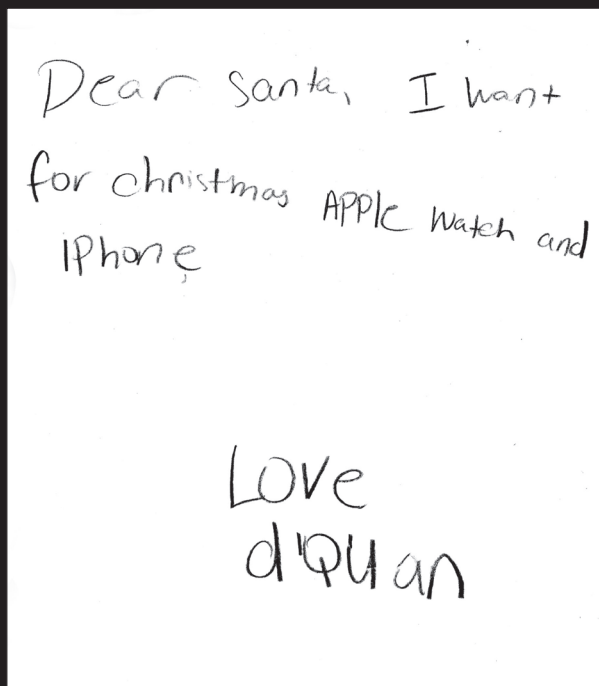 Dear Santa, I want
for christmas APPlE Watch and
iPhone
Love
d'Quan